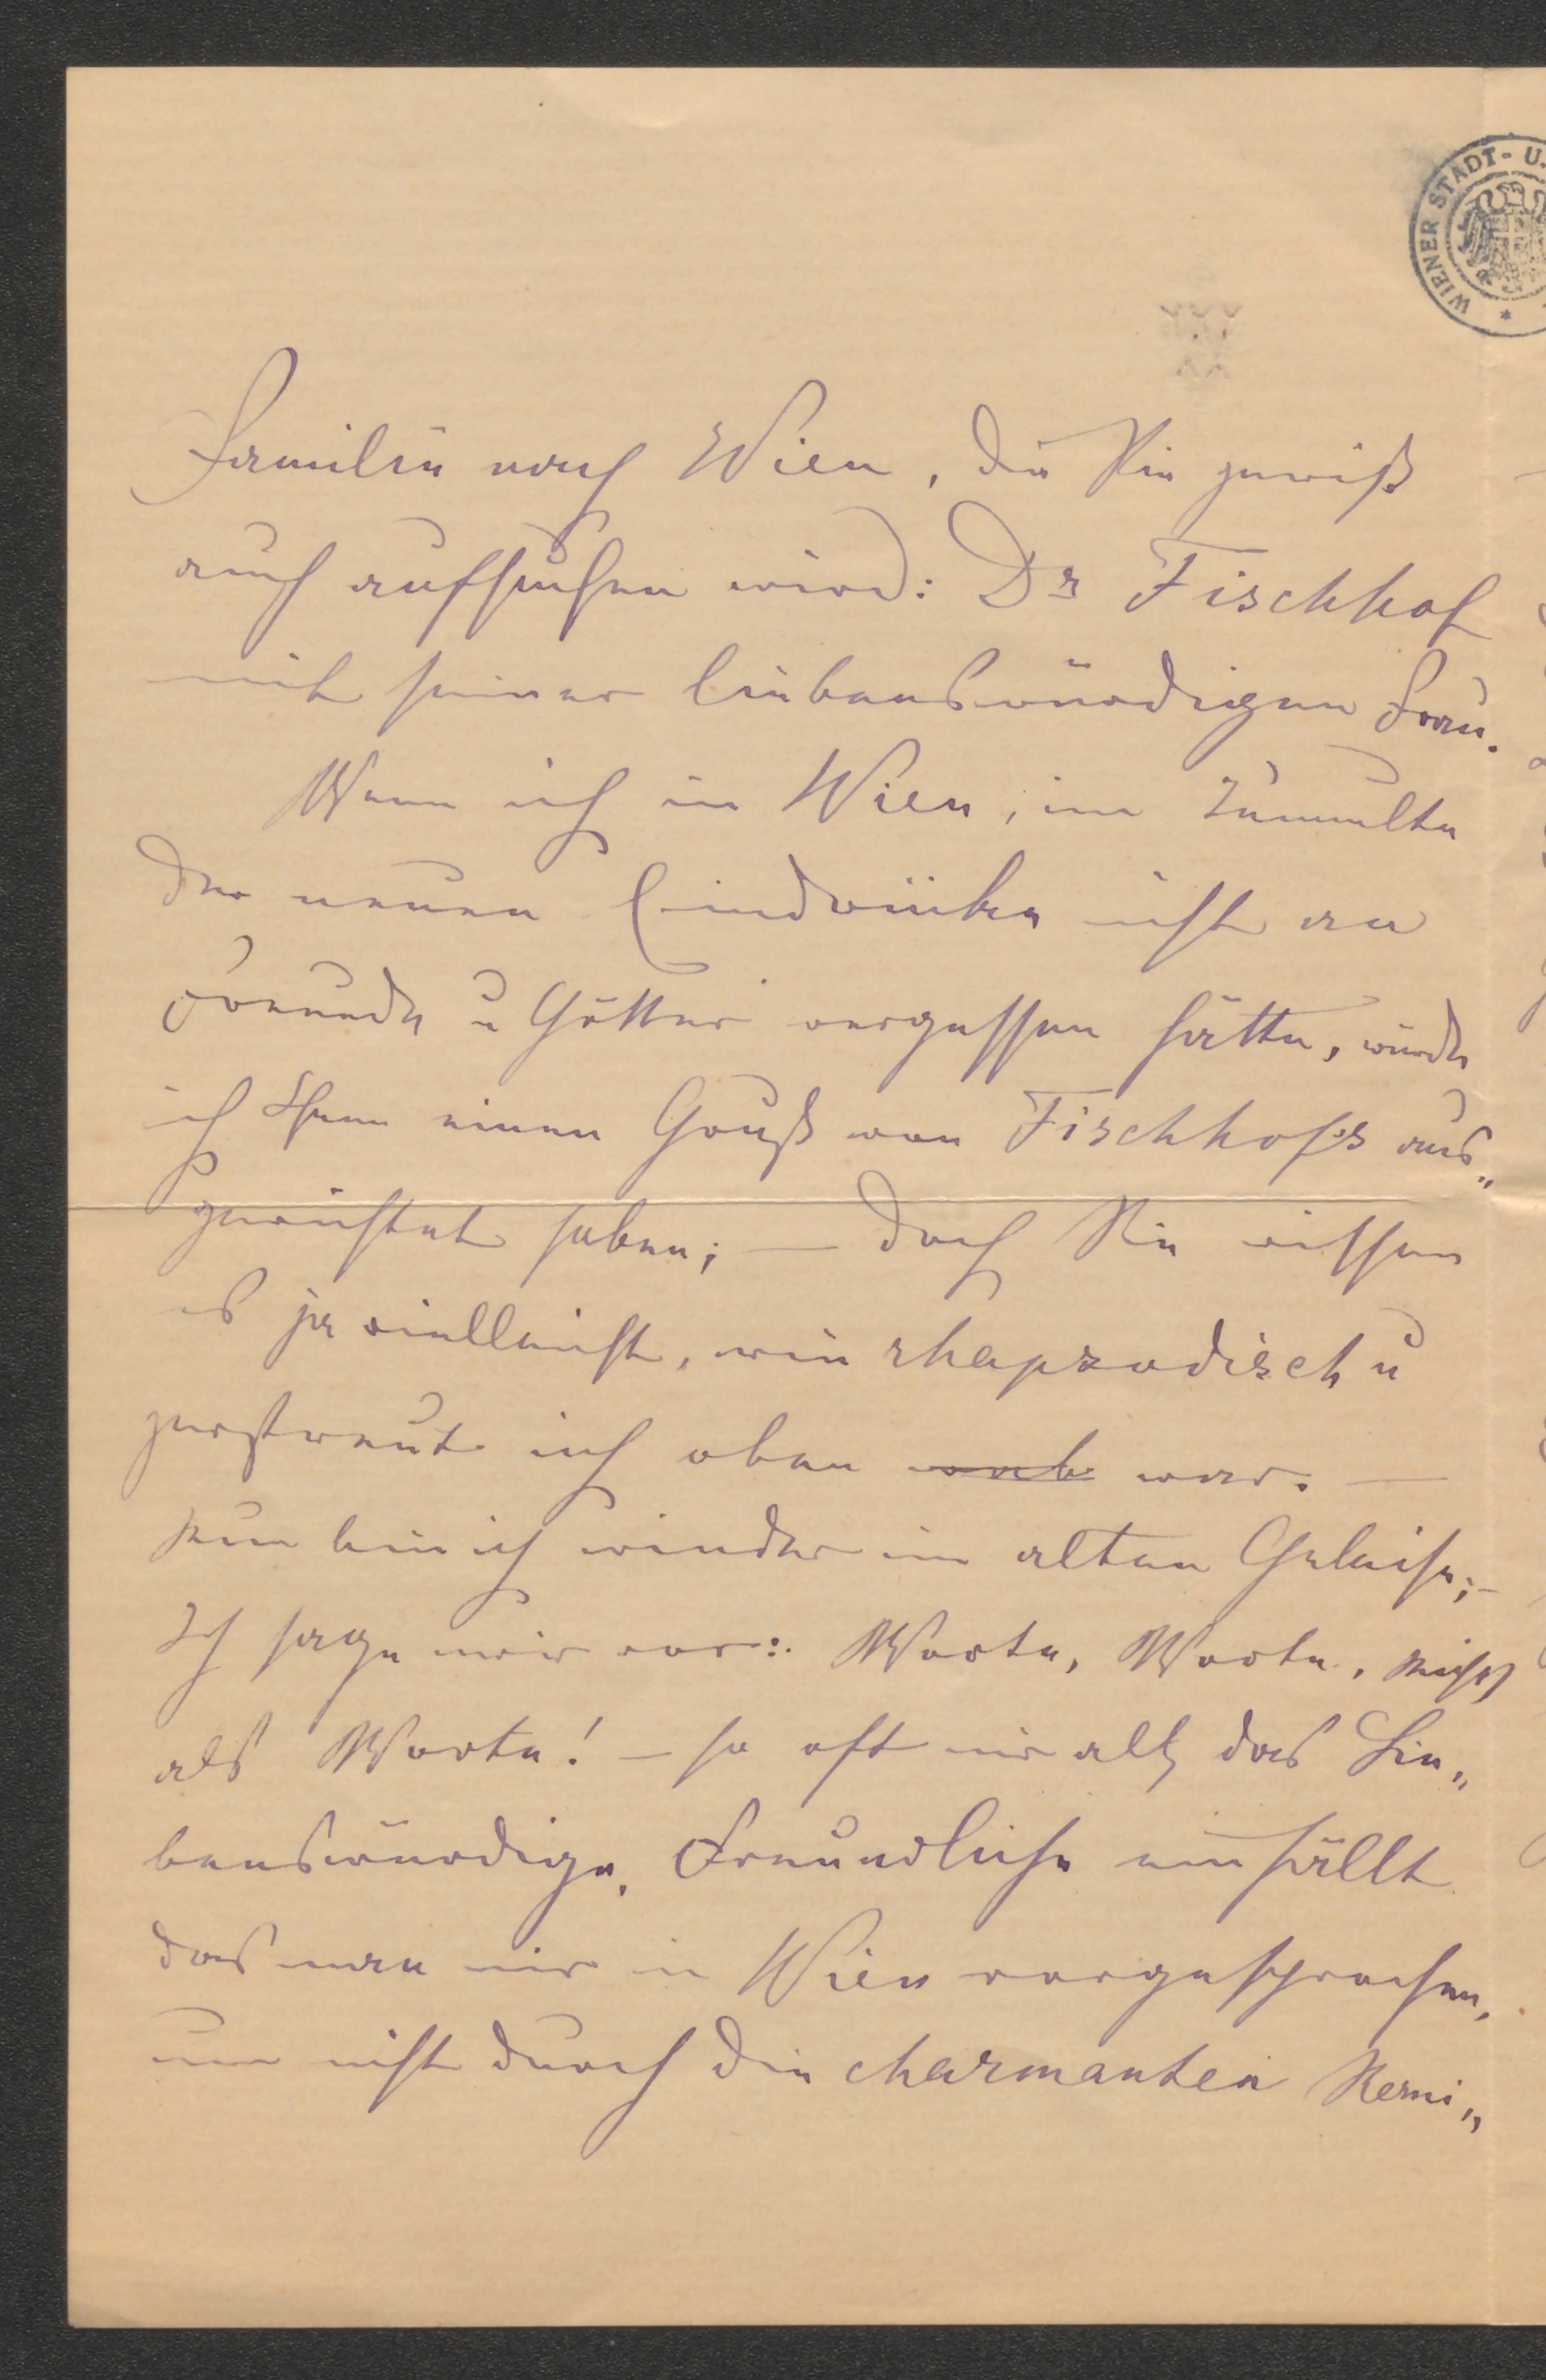 WIENER STADT- U.
Familie nach Wien, die Sie gewiß
auch aufsuchen wird: Dr Fischhof
mit seiner liebenswürdigen Frau.
Wenn ich in Wien, im Tumulte
der neuen Eindrücke nicht an
Freunde u Götter vergessen hätte, würde
ich Ihnen einen Gruß von Fischhofs aus„
gerichtet haben; — doch Sie wissen
es ja vielleicht, wie rhapsodisch u
zerstreut ich oben war. —
Nun bin ich wieder im alten Geleise; –
Ich sage mir vor: Worte, Worte, nichts
als Worte! – so oft mir all das Lie„
benswürdige, Freundliche einfällt
das man mir in Wien vorgesprochen,
um nicht durch die charmanten Remi„